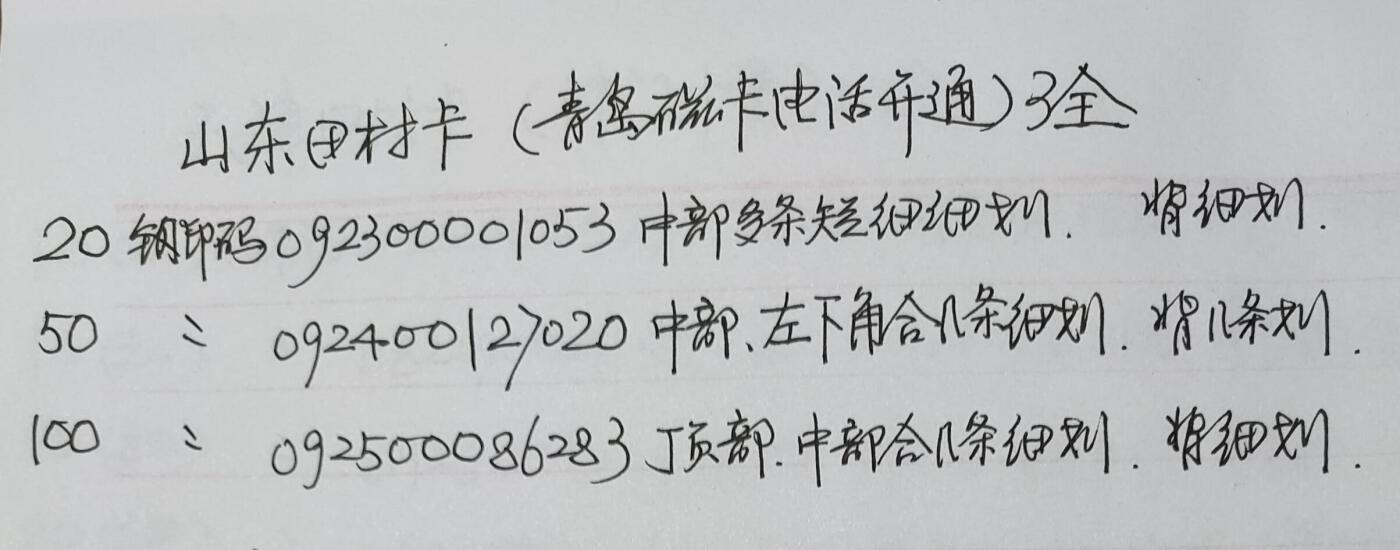 山东田村卡（青岛磁卡电话开通）3全
20 钢印码092300001053 中部多条短细细划. 背细划.
50 〃 092400127020 中部、左下角合几条细划. 背几条划.
100 〃 092500086283 顶部.中部合几条细划. 背细划.